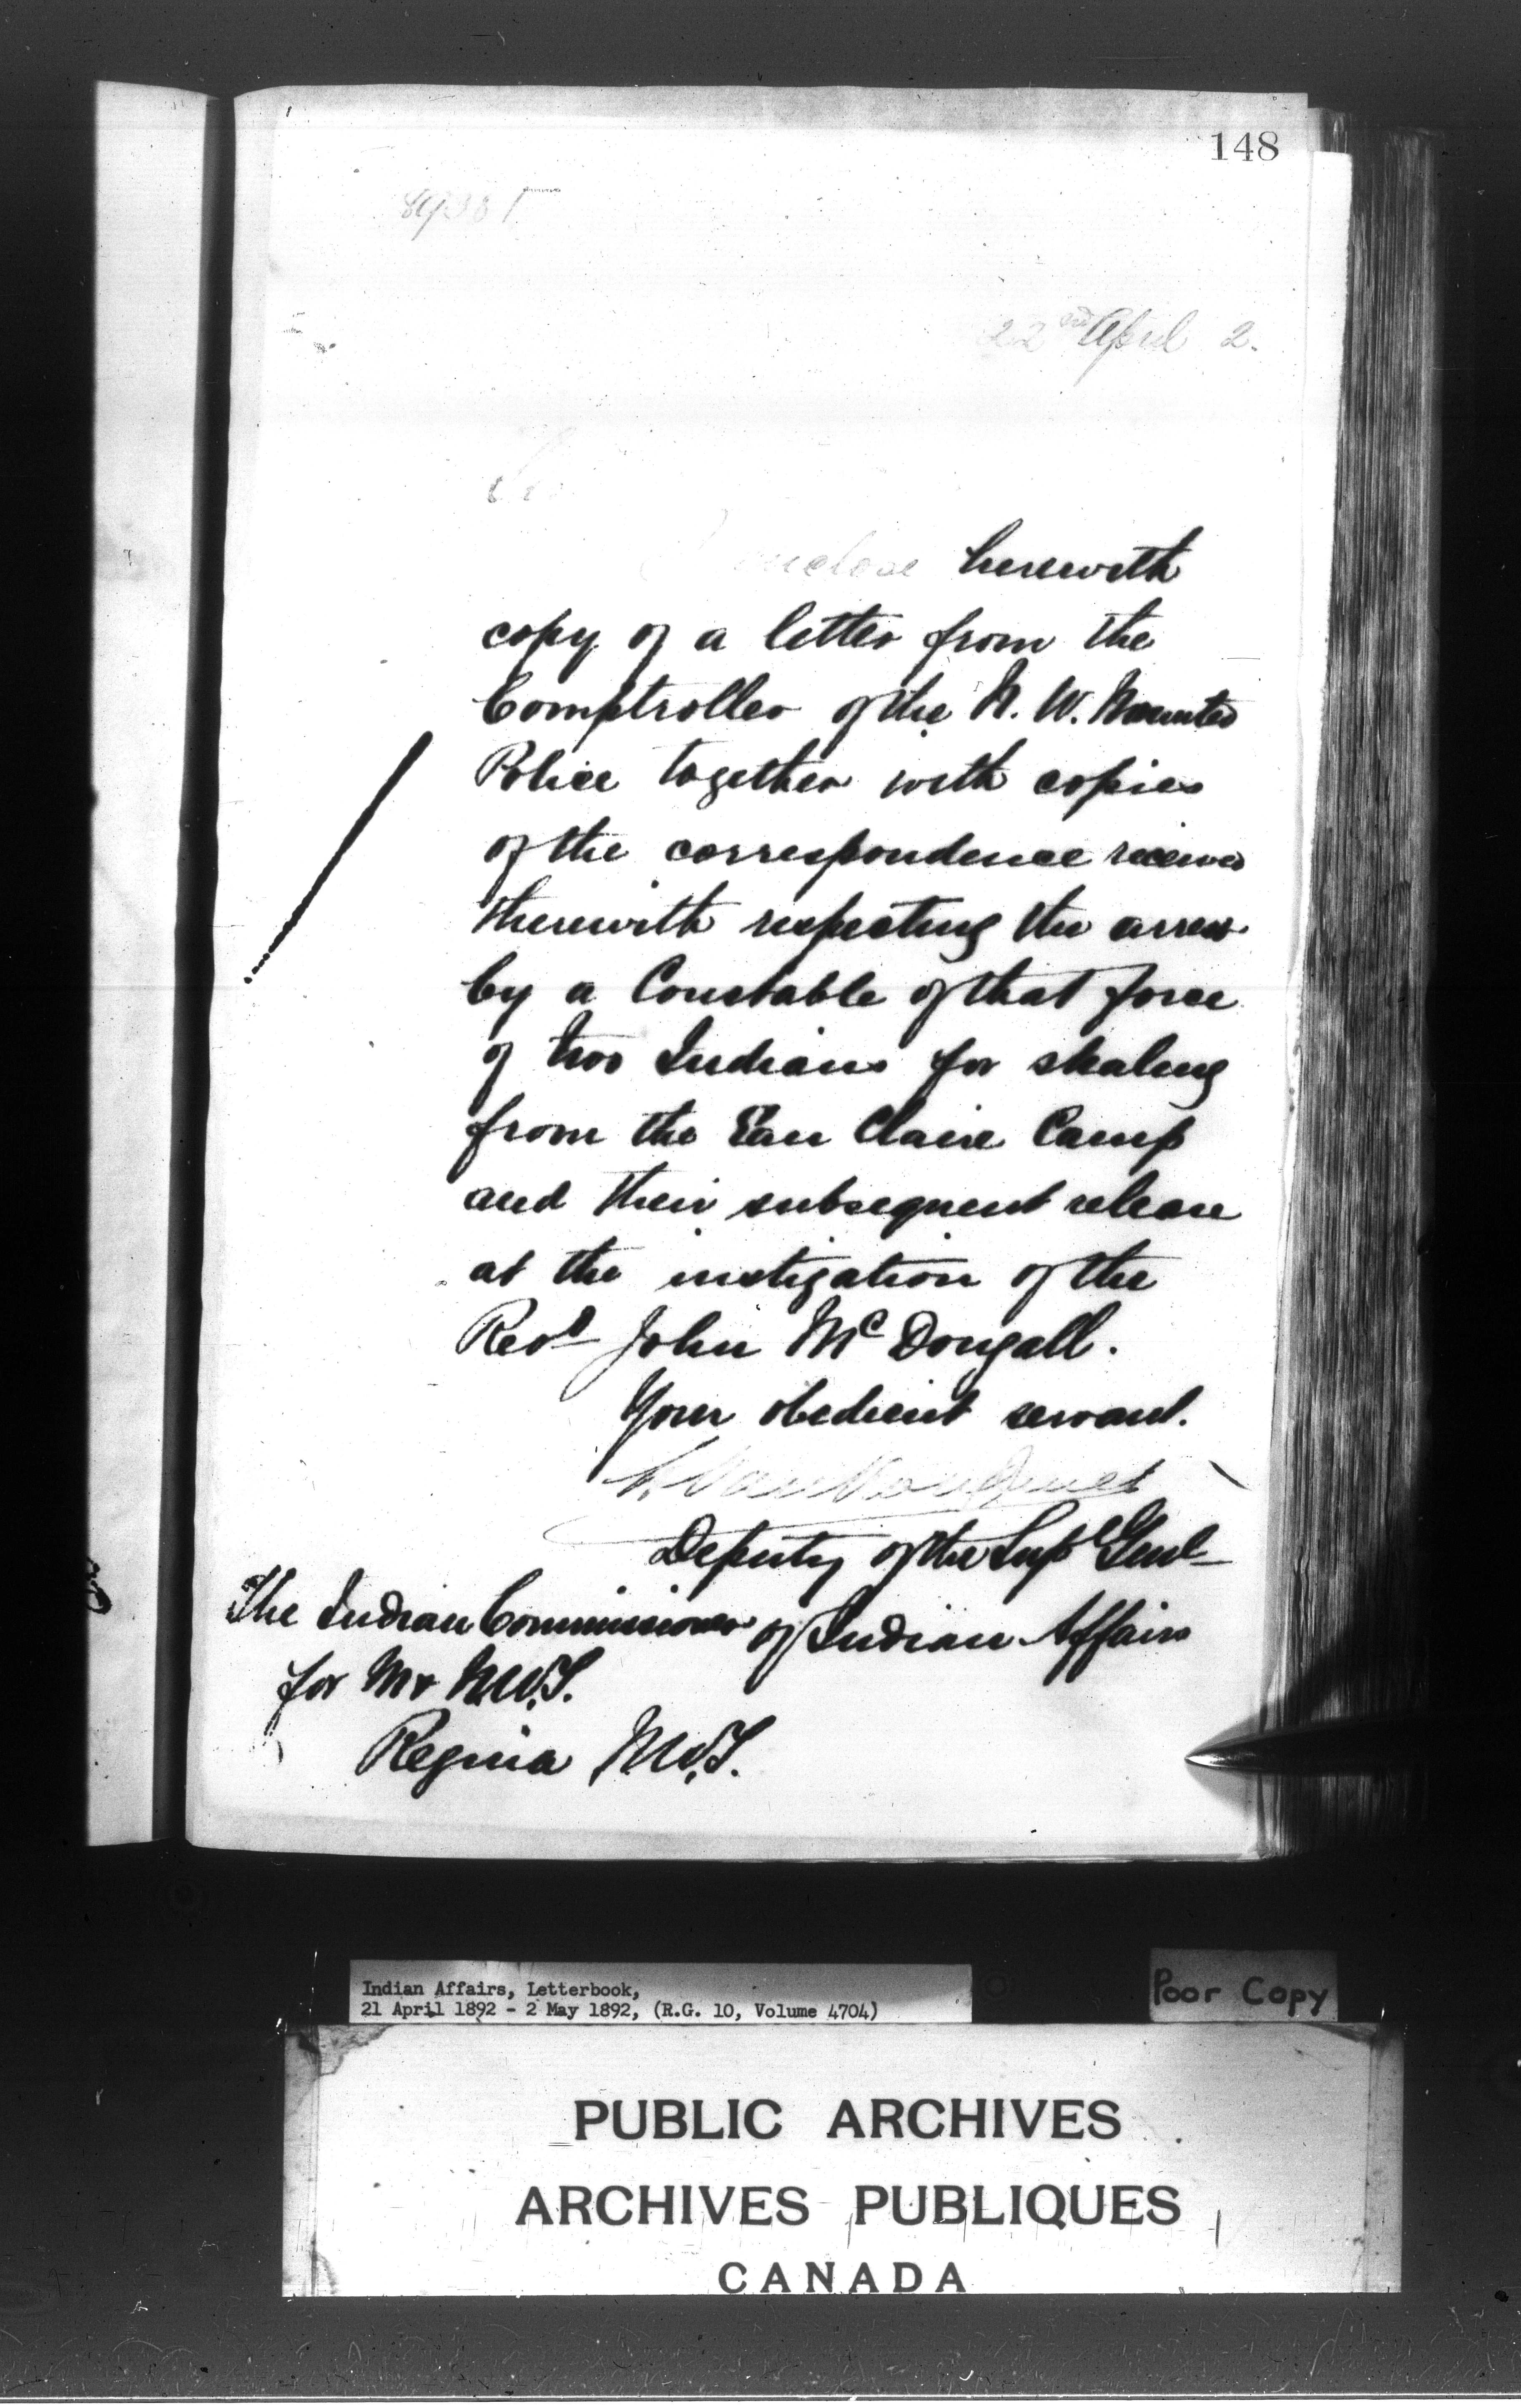 148
22nd April 2.
enclose herewith
copy of a letter from the
Comptroller of the N. W. Mounted
Police together with copies
of the correspondence received
therewith respecting the arrest
by a Constable of that force
of two Indians for stealing
from the Eau Claire Camp
and their subsequent release
at the instigation of the
Revd John McDougall.
Your obedient servant.
L. VanKoughnet
Deputy of the Supt Genl
of Indian Affairs
The Indian Commissioner
for M & N.W.T.
Regina N.W.T.
Indian Affairs, Letterbook,
21 April 1892 - 2 May 1892, (R.G. 10, Volume 4704)
Poor Copy
PUBLIC ARCHIVES
ARCHIVES PUBLIQUES
CANADA